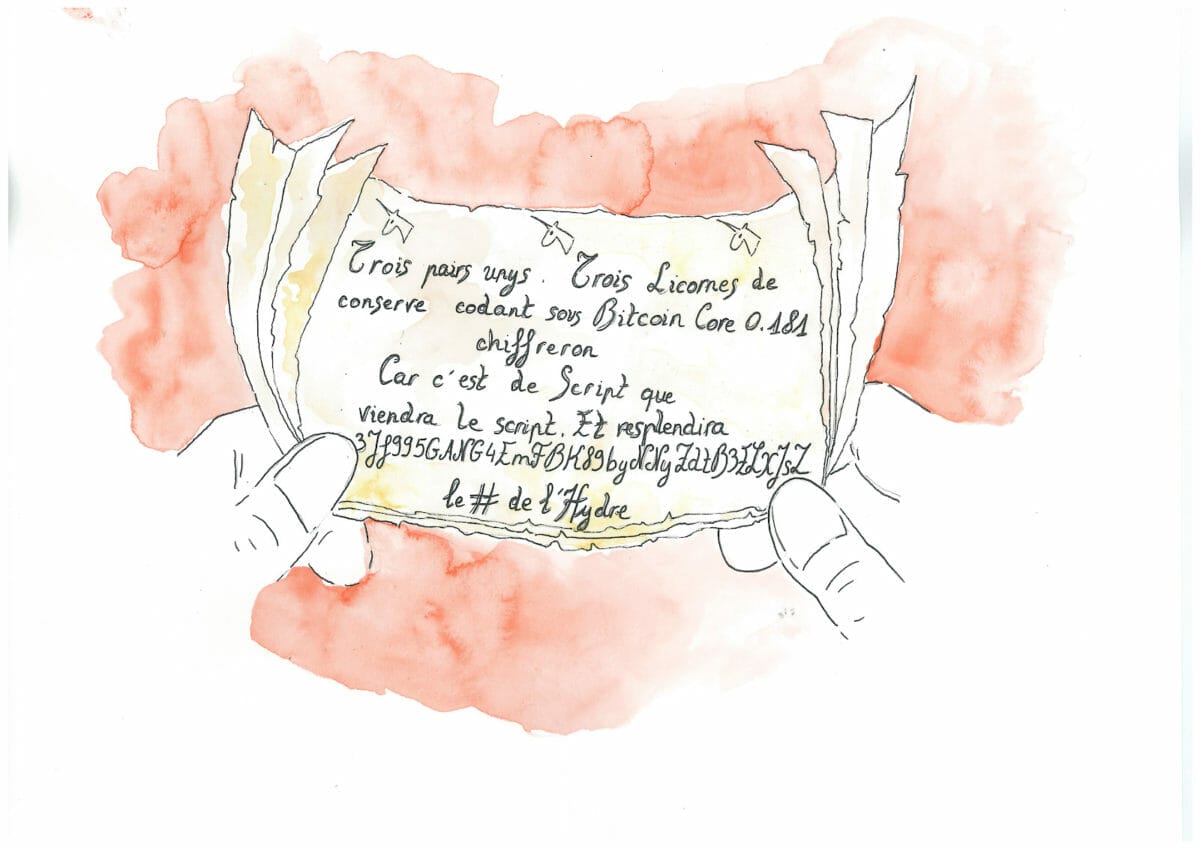 Trois pairs unys. Trois Licornes de
conserve codant sous Bitcoin Core 0.181
chiffreron
Car c'est de Script que
viendra le script. Et resplendira
3Jf995GANG4EmFBK89byNNyZdtB3ZLXJsZ
le # de l'Hydre